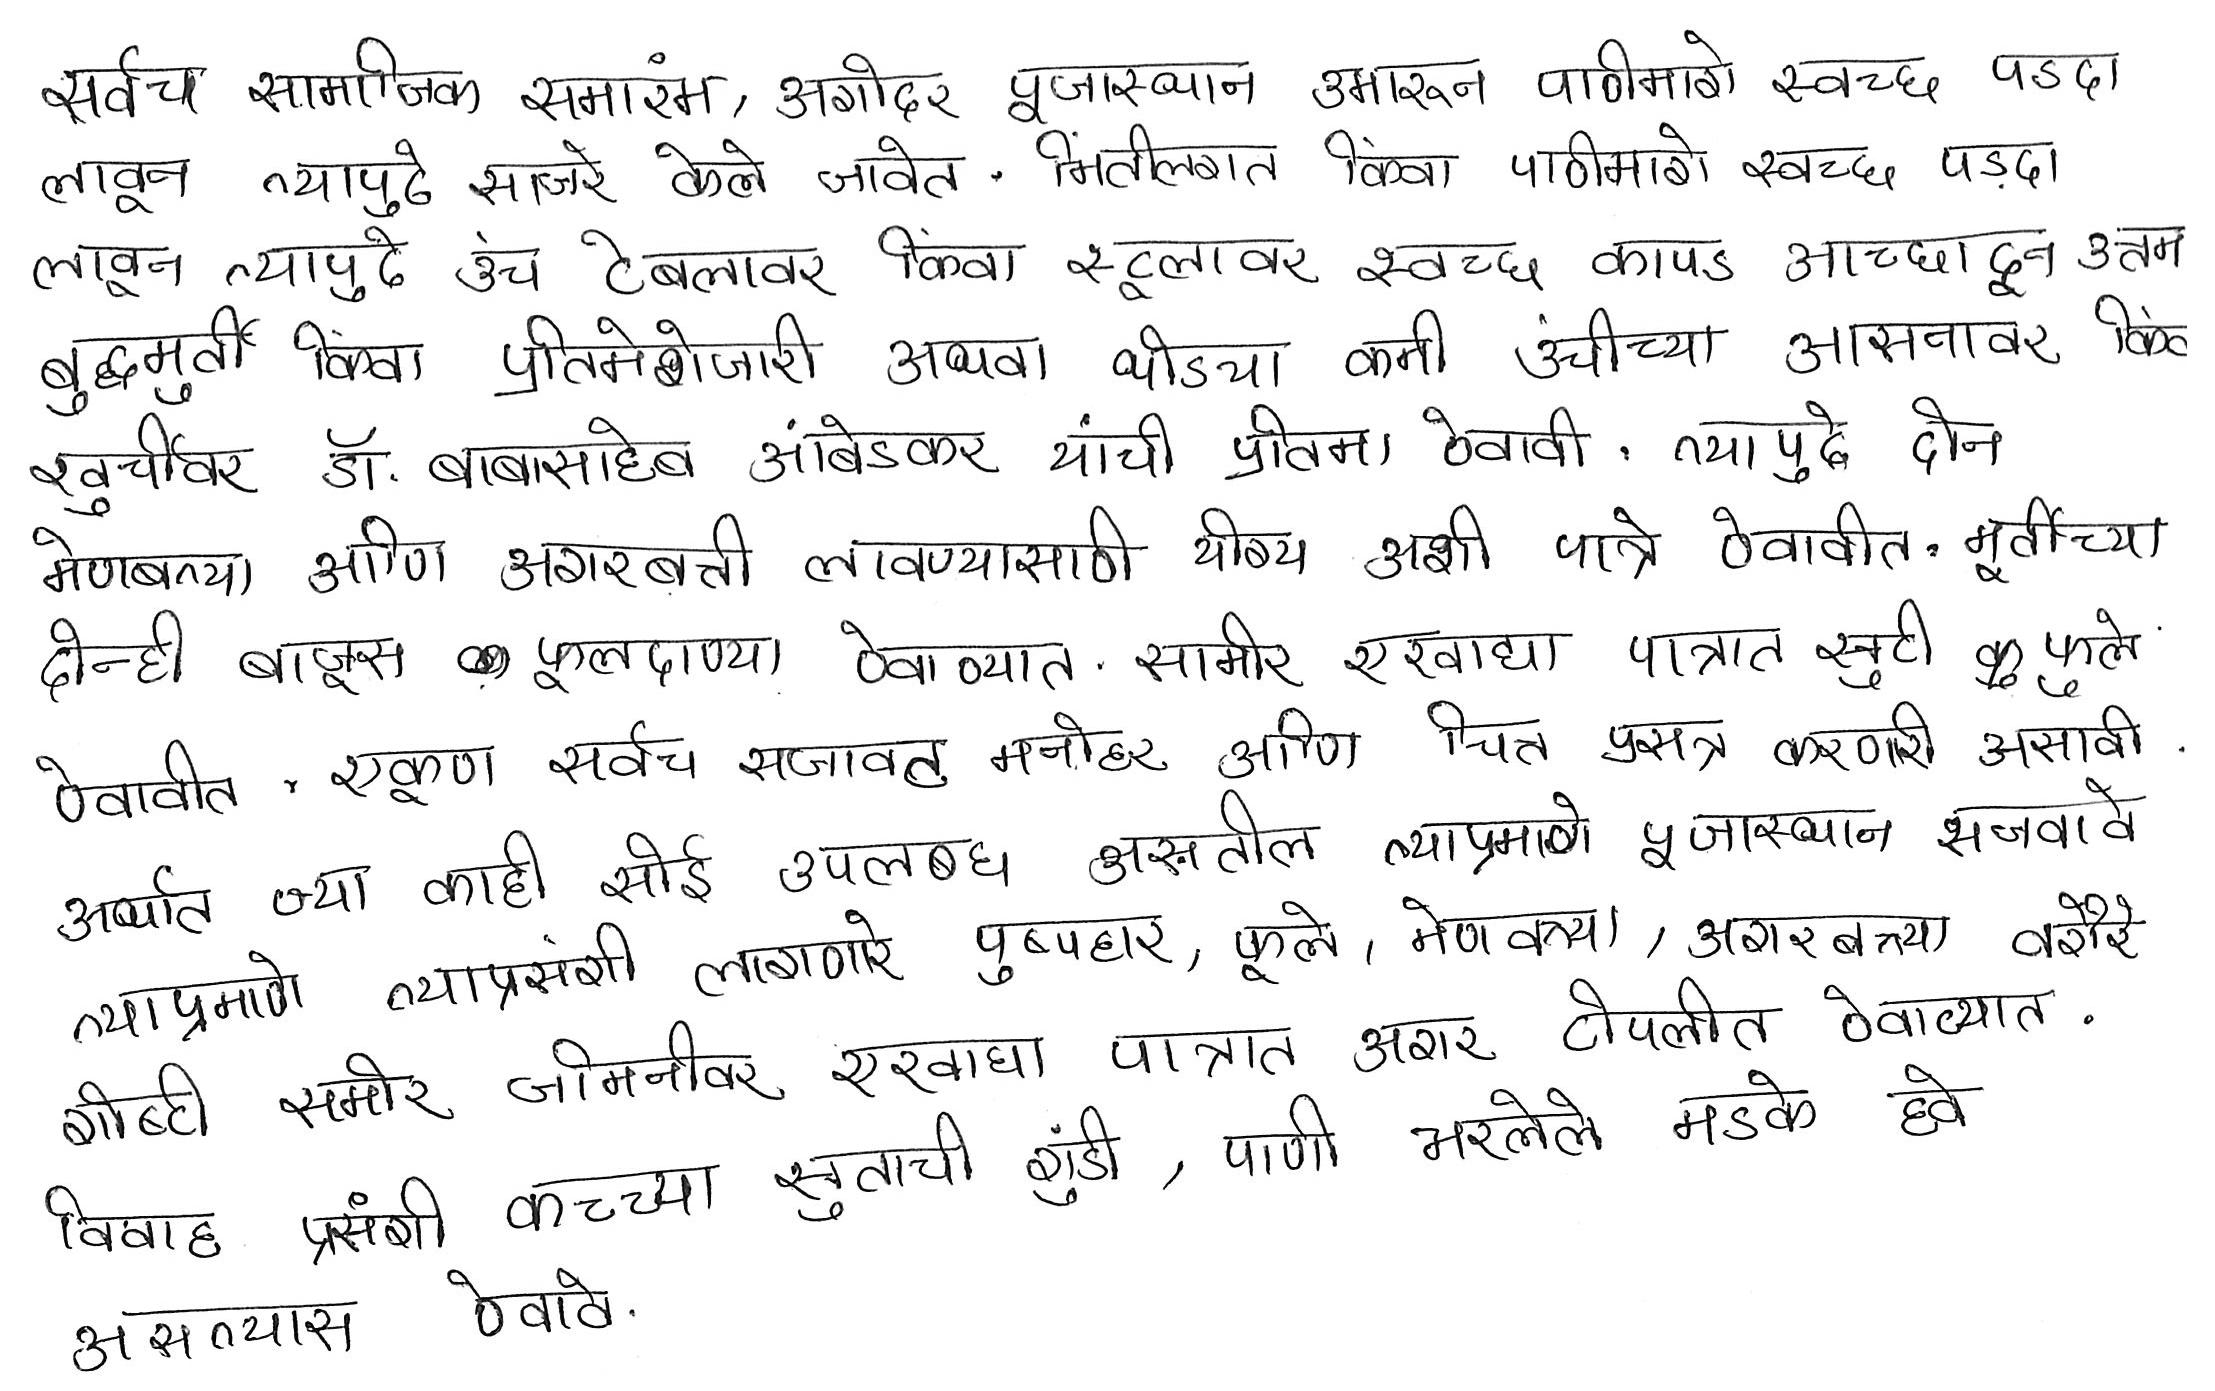 सर्वच सामाजिक समारंभ, अगोदर पूजास्थान उभारून पाठीमागे स्वच्छ पडदा
लावून त्यापुढे साजरे केले जावेत. भिंतीलगत किंवा पाठीमागे स्वच्छ पडदा
लावून त्यापुढे उंच टेबलावर किंवा स्टूलावर स्वच्छ कापड आच्छादून उत्तम
बुद्धमुर्ती किंवा प्रतिमेशेजारी अथवा थोड्या कमी उंचीच्या आसनावर किंवा
खुर्चीवर डॉ. बाबासाहेब आंबेडकर यांची प्रतिमा ठेवावी. त्यापुढे दोन
मेणबत्या आणि अगरबत्ती लावण्यासाठी योग्य अशी पात्रे ठेवावीत. मूर्तीच्या
दोन्ही बाजूस फूलदाण्या ठेवाव्यात. सामोर एखाद्या पात्रात सुटी फुले
ठेवावीत. एकूण सर्वच सजावट मनोहर आणि चित्त प्रसन्न करणारी असावी.
अर्थात ज्या काही सोई उपलब्ध असतील त्याप्रमाणे पूजास्थान सजवावे
त्याप्रमाणे त्याप्रसंगी लागणारे पुष्पहार, फूले, मेणबत्या, अगरबत्त्या वगैरे
गोष्टी समोर जमिनीवर एखाद्या पात्रात अगर टोपलीत ठेवाव्यात.
विवाह प्रसंगी कच्च्या सुताची गुंडी, पाणी भरलेले मडके हवे
असल्यास ठेवावे.